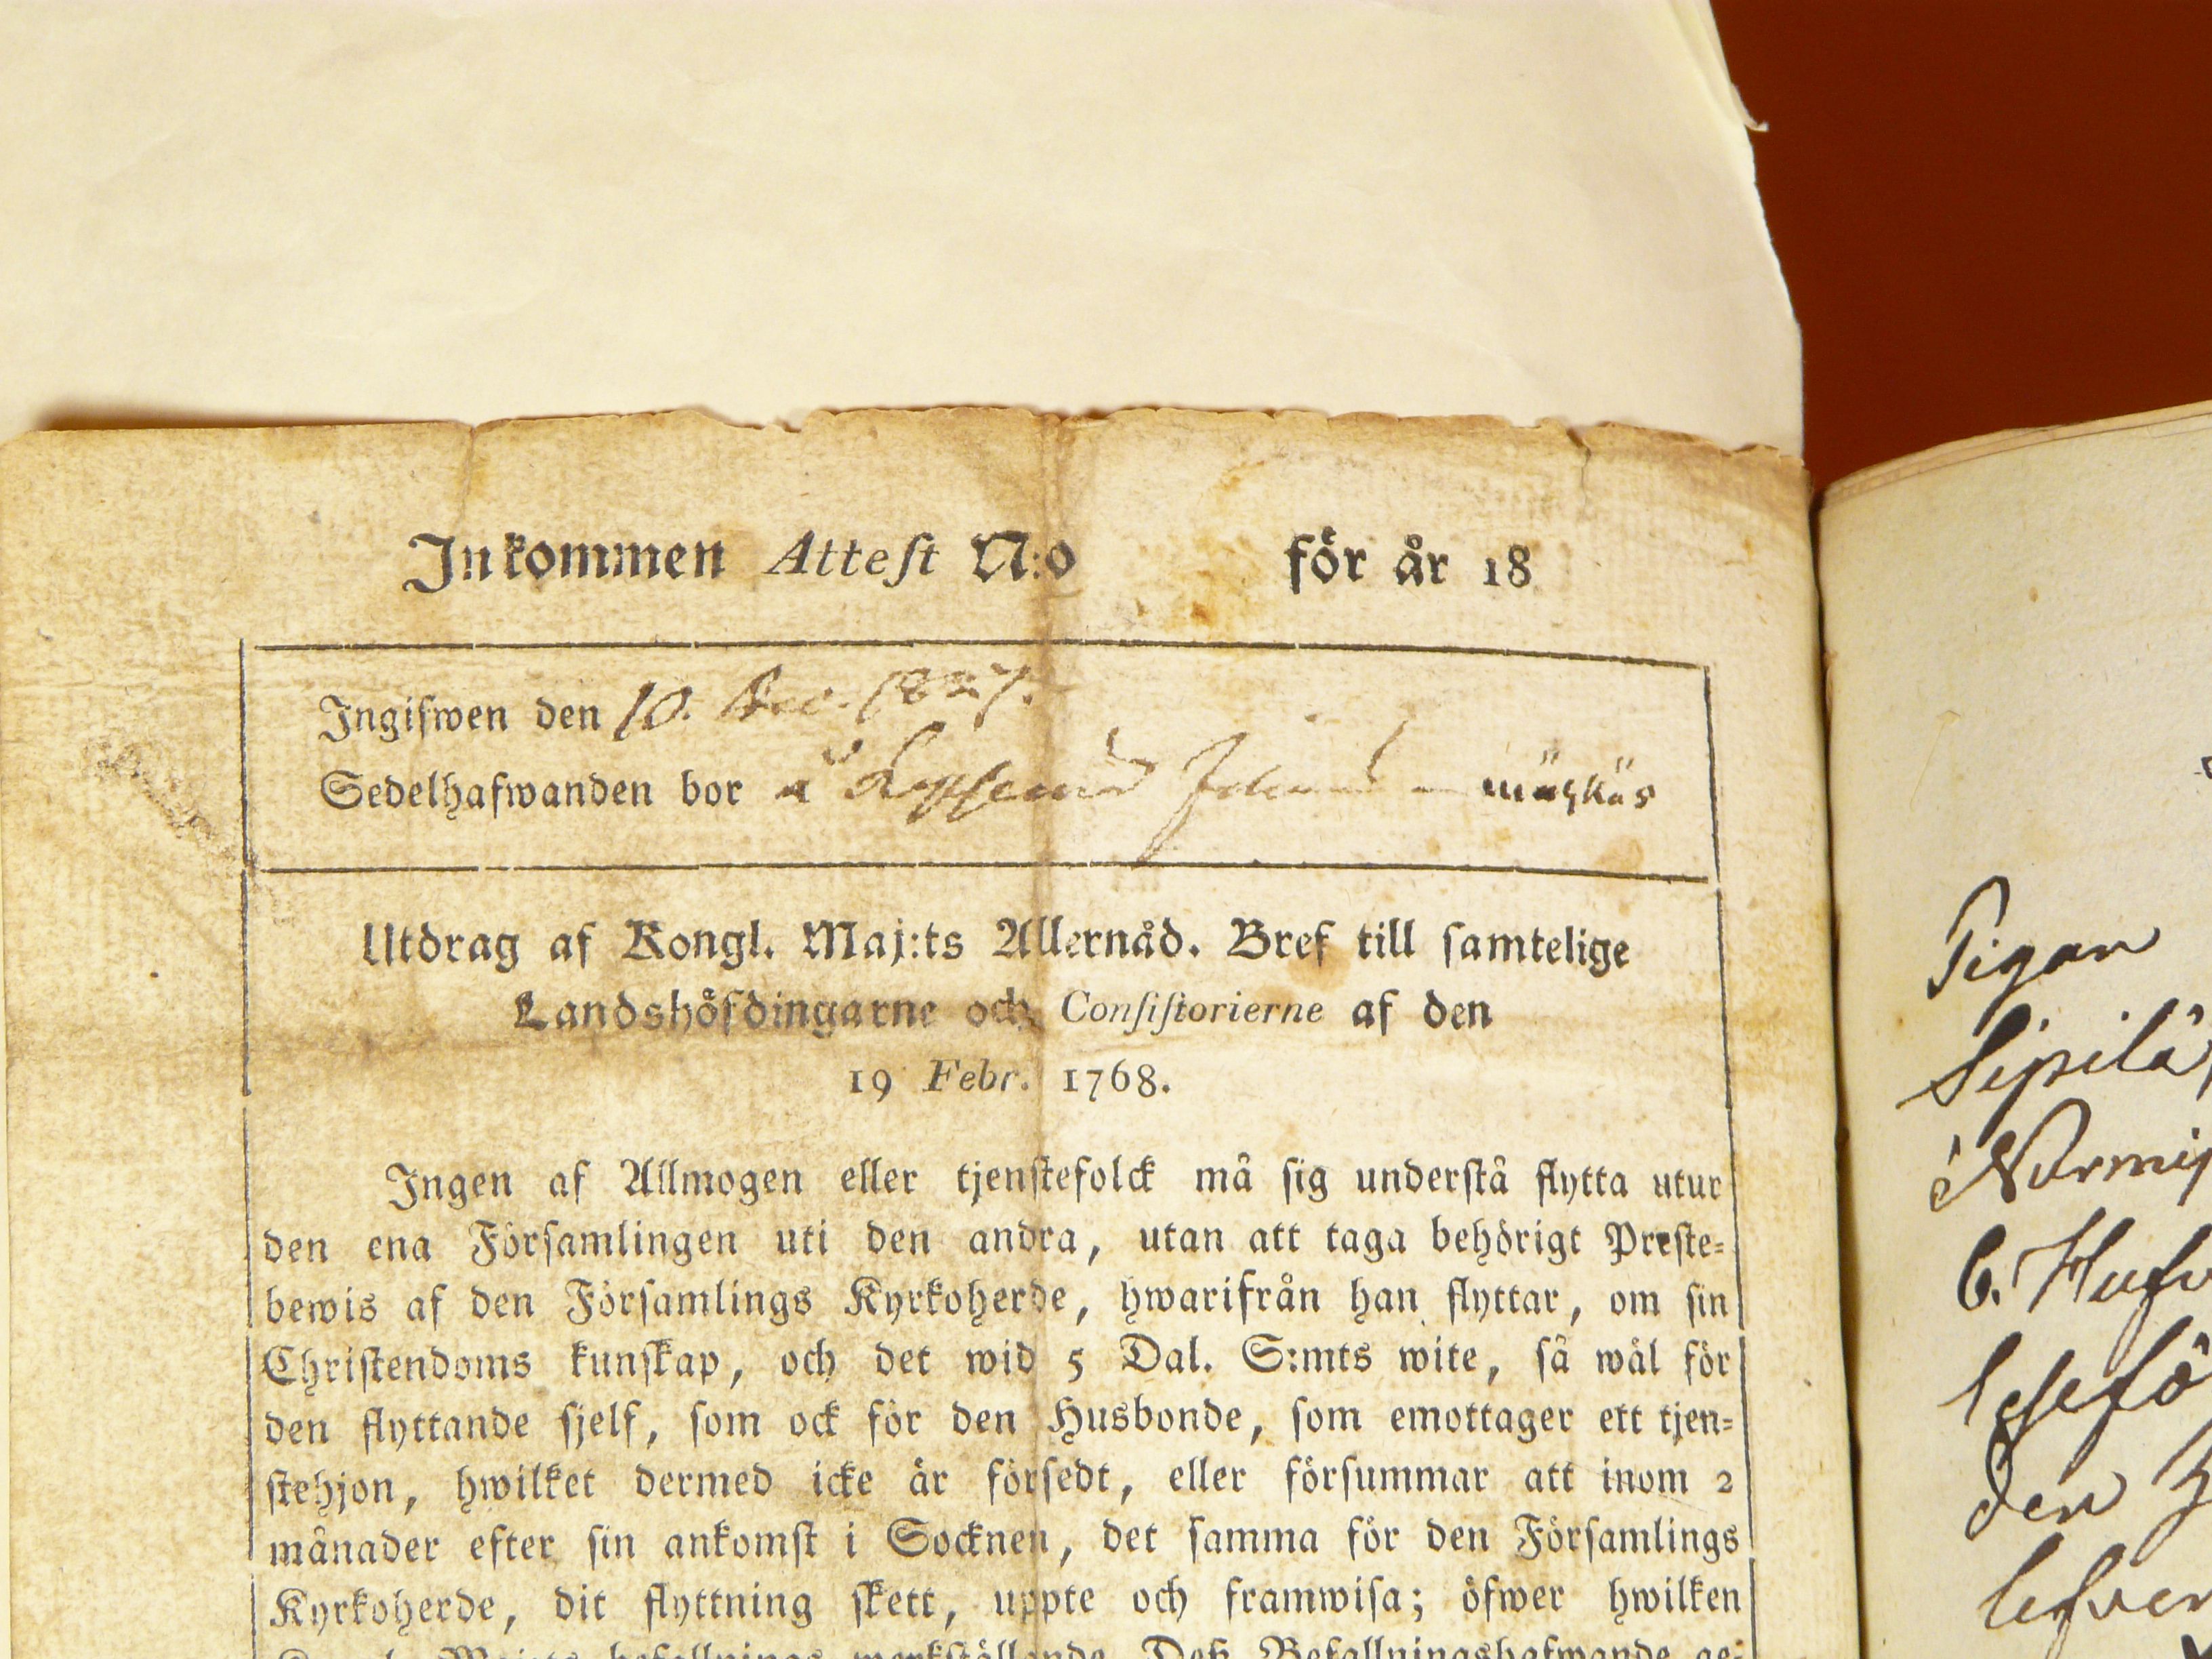 Inkommen Attest N:o för år 18
Ingifwen den 10. Dec. 1827.
Sedelhafwanden bor å
Utdrag af Kongl. Maj:ts Allernåd. Bref till samtelige
Landshöfdingarne och Consistorierne af den
19 Febr. 1768.
Ingen af Allmogen eller tjenstefolck må sig understå flytta utur
den ena Församlingen uti den andra, utan att taga behörigt Preste-
bewis af den Församlings Kyrkoherde, hwarifrån han flyttar, om sin
Christendoms kunskap, och det wid 5 Dal. S:mts wite, så wäl för
den flyttande sjelf, som ock för den Husbonde, som emottager ett tjen-
stehjon, hwilket dermed icke är försedt, eller försummar att inom 2
månader efter sin ankomst i Socknen, det samma för den Församlings
Kyrkoherde, dit flyttning skett, uppte och framwisa; öfwer hwilken
Befallningshafwande
Pigan
Sipilä
den